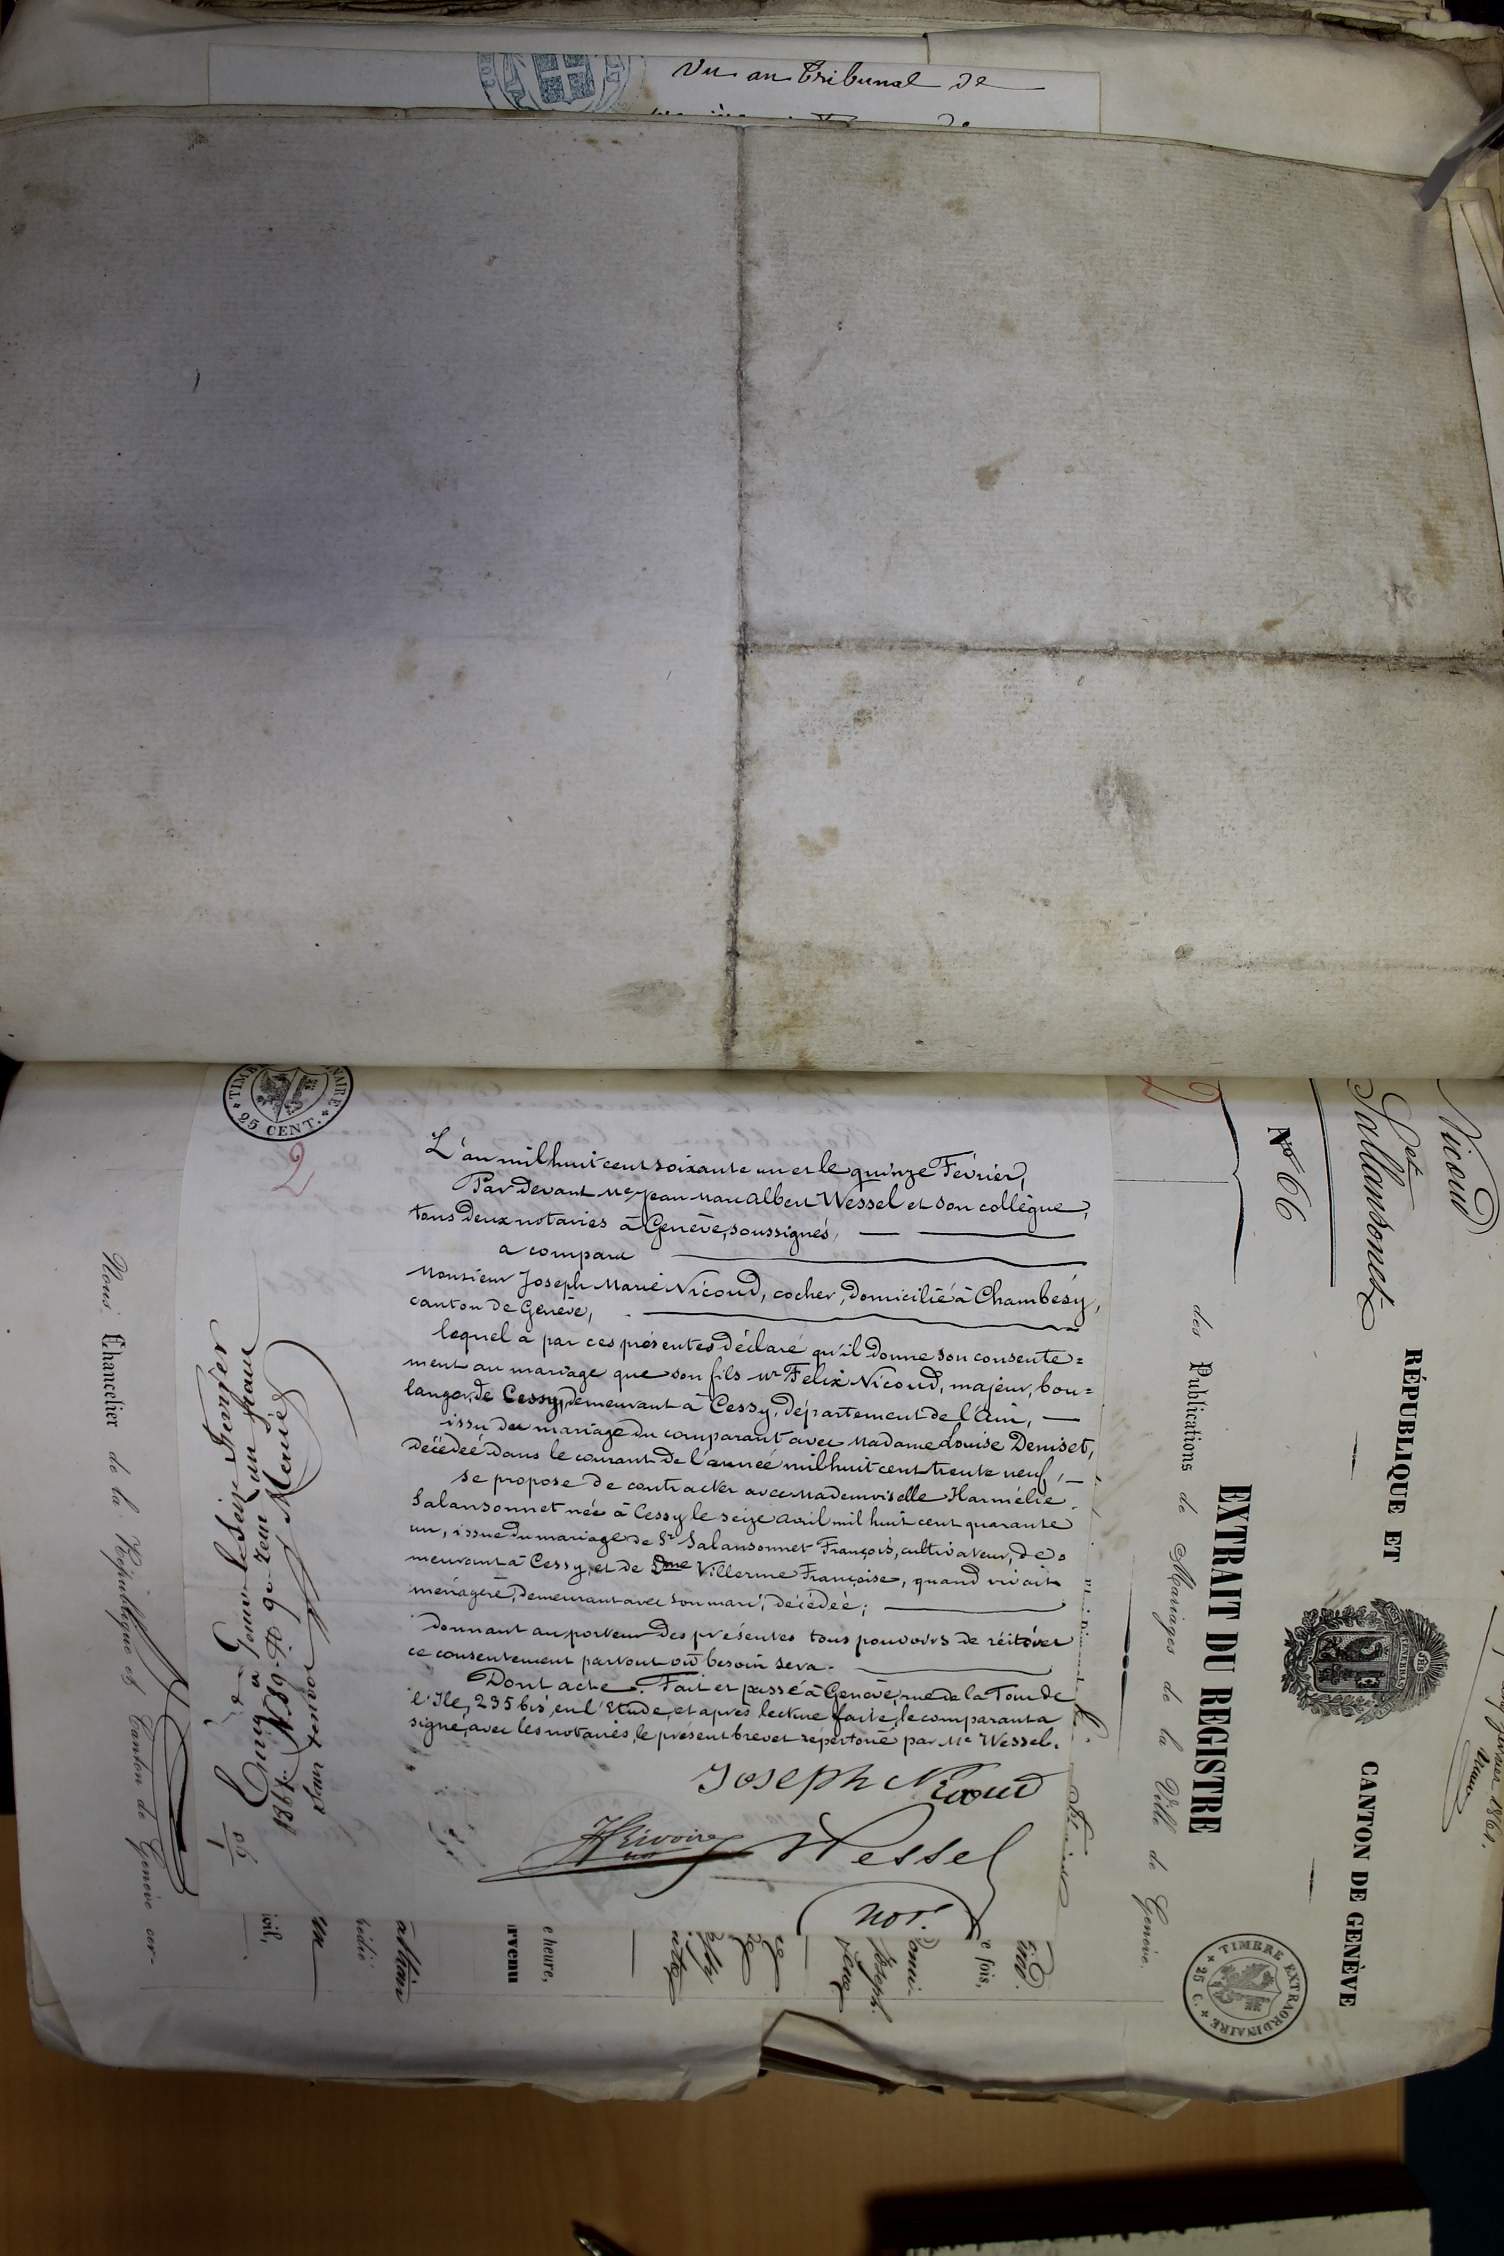 Vu au Tribunal de
TIMBRE EXTRAORDINAIRE
25 CENT.
2
L'an mil huit cent soixante un et le quinze Février,
Par Devant Me Jean Marc Albert Wessel et son collègue,
tous deux notaires à Genève, soussignés,
a comparu
Monsieur Joseph Marie Nicoud, cocher, domicilié à Chambésy,
canton de Genève,
lequel a par ces présentes déclaré qu'il donne son consente=
ment au mariage que son fils Mr Felix Nicoud, majeur, bou=
langer, de Cessy, demeurant à Cessy, département de l'Ain,
issu du mariage du comparant avec Madame Louise Deniset,
décédée dans le courant de l'année mil huit cent trente neuf,
se propose de contracter avec Mademoiselle Harmélie
Salansonnet née à Cessy le seize avril mil huit cent quarante
un, issue du mariage de Sr Salansonnet François, cultivateur, de=
meurant à Cessy, et de Dme Villerme Françoise, quand vivait
ménagère, demeurant avec son mari, décédée;
donnant au porteur des présentes tous pouvoirs de réitérer
ce consentement partout où besoin sera.
Dont acte. Fait et passé à Genève, rue de la Tour de
l'Ile, 235 bis, en l'Etude, et après lecture faite, le comparant a
signé, avec les notaires, le présent brevet répertorié par Me Wessel.
Joseph Nicoud
Wessel
not.
Enreg. à Genève le Seize Février
1861.
sans renvoi
Nous Chancelier de la République et Canton de Genève cer-
Nicoud
et
Salansonet
No 66
RÉPUBLIQUE ET CANTON DE GENÈVE
EXTRAIT DU REGISTRE
des Publications de Mariages de la Ville de Genève.
TIMBRE EXTRAORDINAIRE
25 C.
e fois,
Joseph
e heure,
rvenu